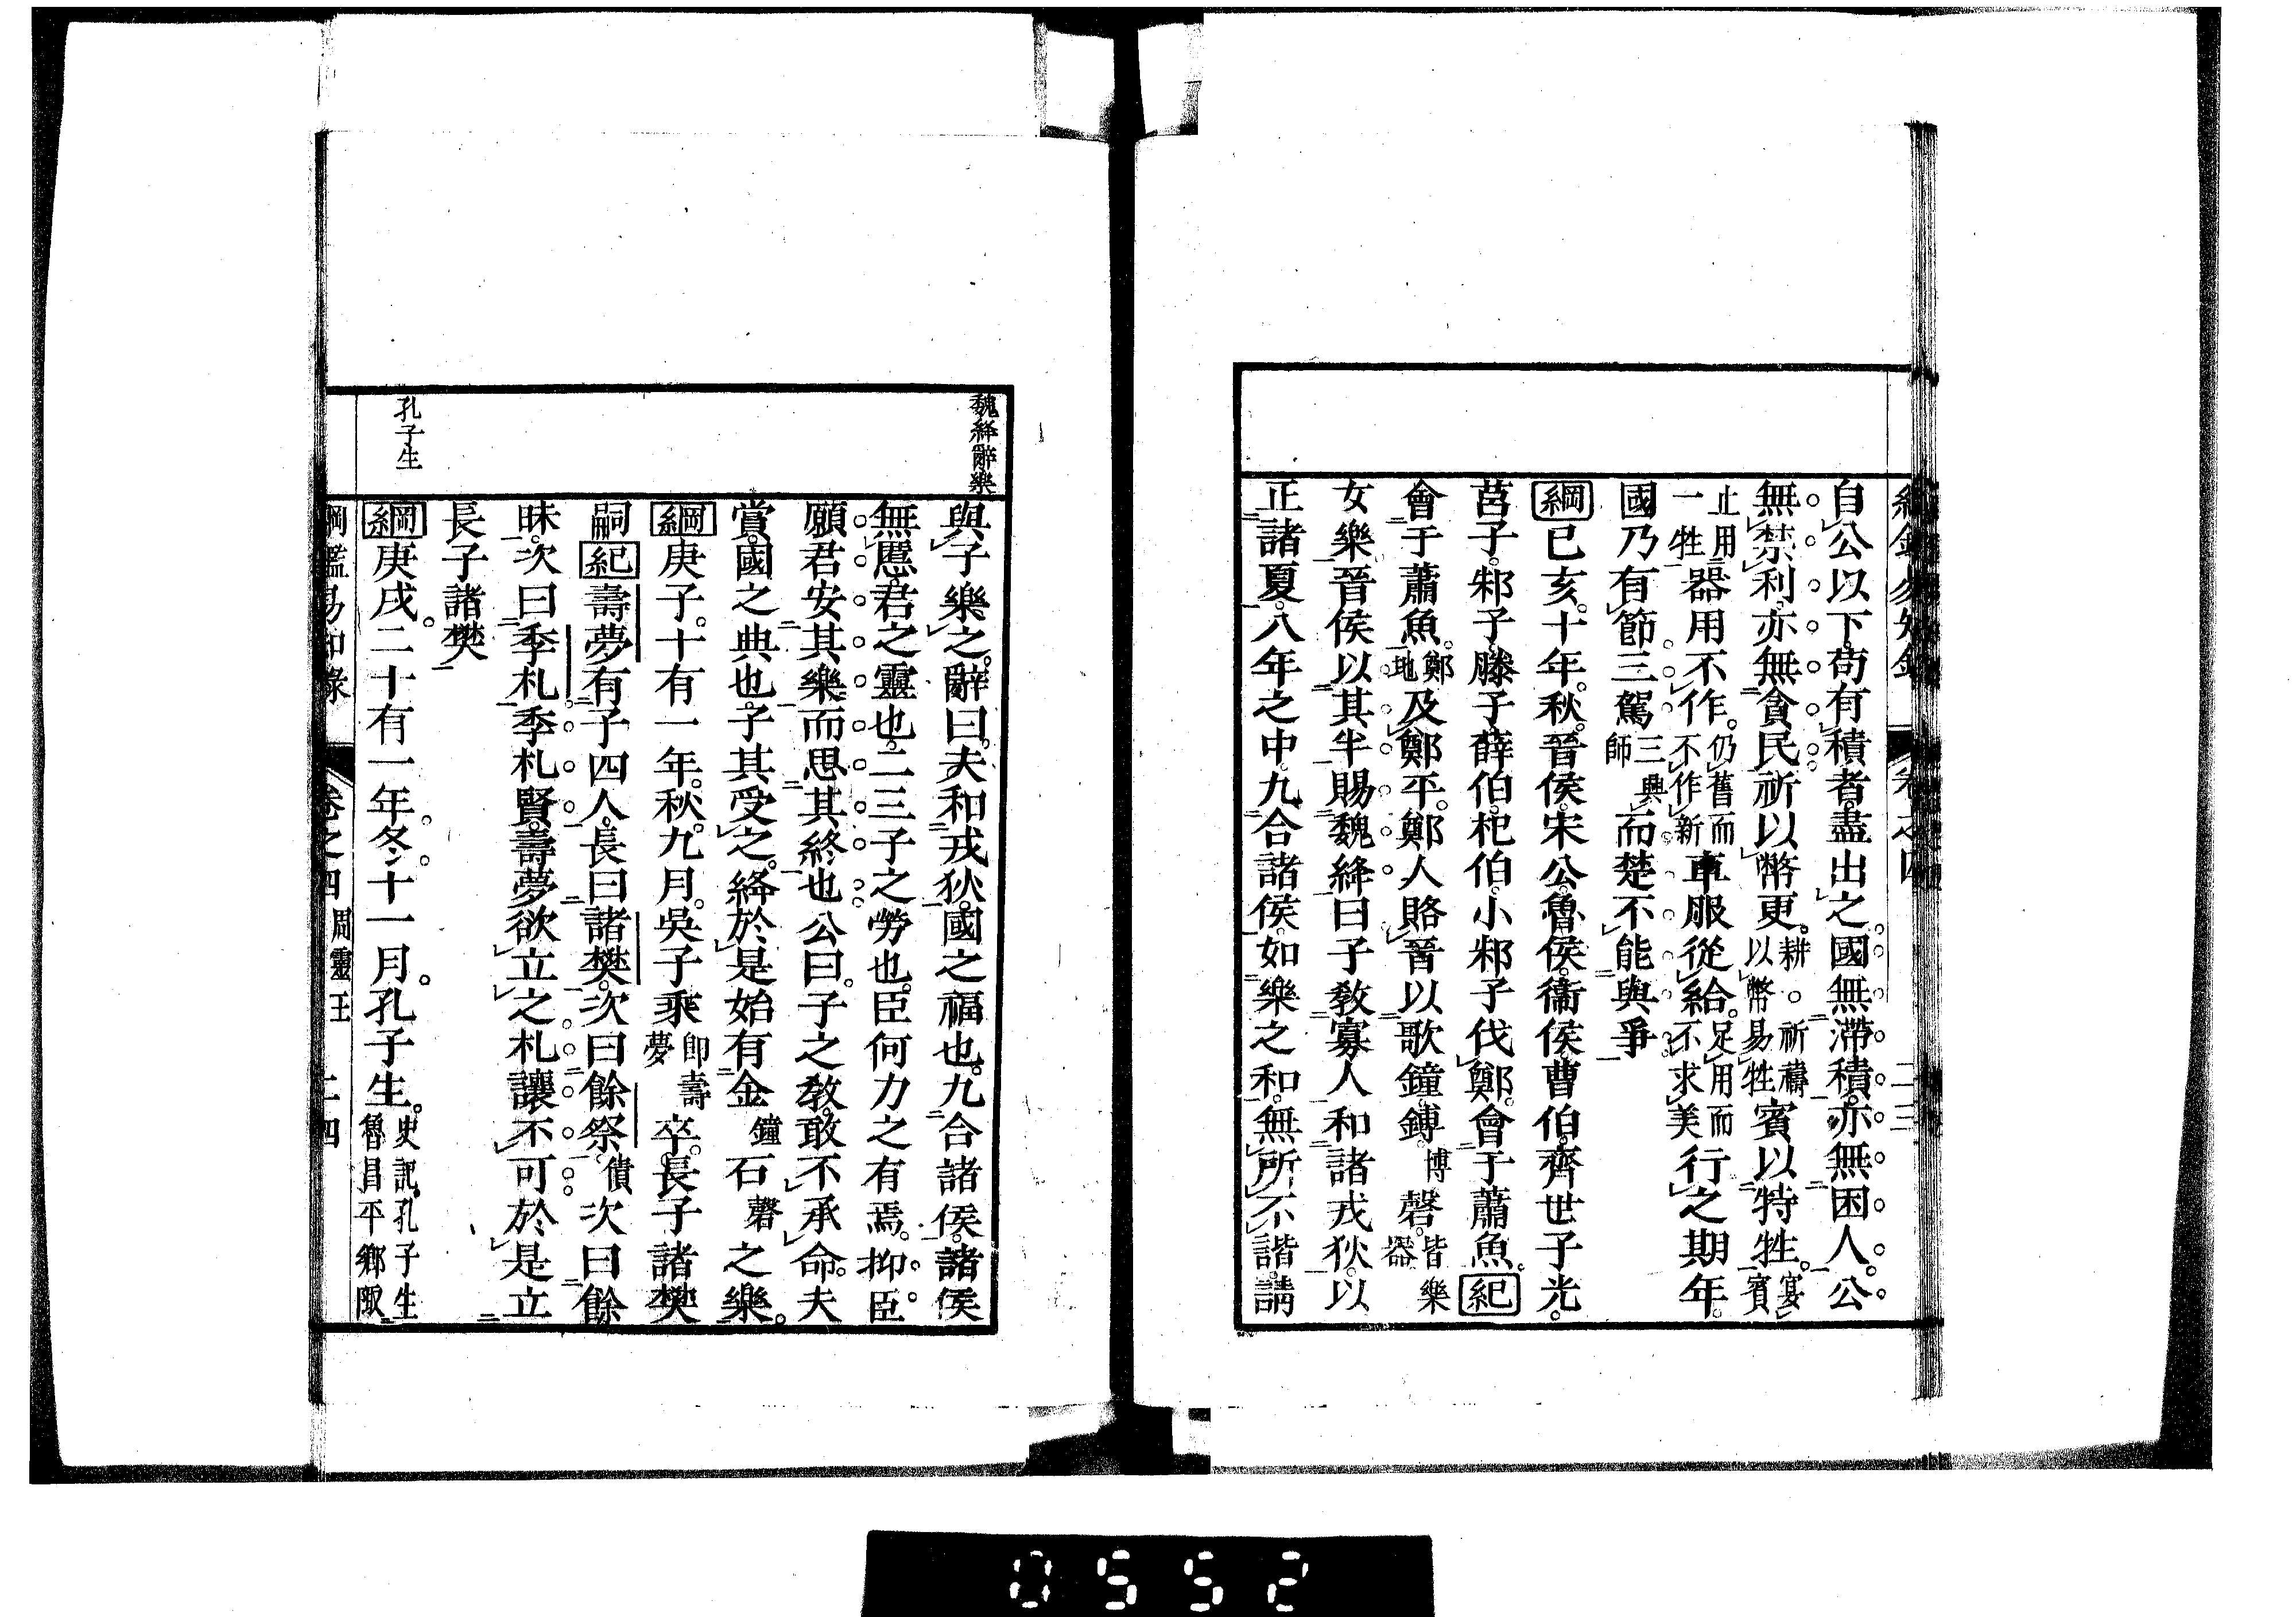 自公以下。苟有積者。盡出之。國無滯積。亦無困人。公
無禁利。亦無貪民。祈以幣更。耕。祈禱以幣易牲賓以特牲。宴賓
止用一牲器用不作。仍舊而不作新車服從給。足用而不求美行之期年。
國乃有節。三駕三興師而楚不能與爭
綱己亥。十年。秋。晉侯宋公魯侯。衞侯曹伯。齊世子光。
莒子。邾子滕子薛伯。杞伯。小邾子伐鄭。會于蕭魚。紀
會于蕭魚。鄭地及鄭平。鄭人賂晉以歌鐘鎛博磬。皆樂器
女樂晉侯以其半賜魏絳曰子敎寡人和諸戎狄。以
正諸夏。八年之中。九合諸侯。如樂之和。無所不諧。請
卷之四
二三
魏絳辭樂
與子樂之。辭曰。夫和戎狄。國之福也。九合諸侯。諸侯
無慝。君之靈也。二三子之勞也。臣何力之有焉。抑臣
願君安其樂而思其終也公曰。子之敎。敢不承命。夫
賞。國之典也。子其受之。絳於是始有金鐘石磬之樂。
綱庚子。十有一年。秋。九月。吳子乘卽壽夢卒。長子諸樊
嗣紀壽夢有子四人。長曰諸樊。次曰餘祭。債次曰餘
眛。次曰季札。季札賢。壽夢欲立之札讓不可於是立
長子諸樊
孔子生
綱庚戌。二十有一年。冬。十一月。孔子生。史記。孔子生魯昌平鄉陬
綱鑑易知錄 卷之四 周靈王 二四
0552